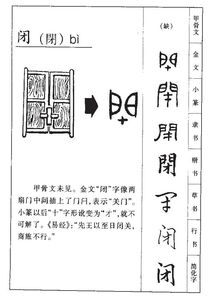 闭(閉) bì
甲骨文未见。金文“闭”字像两
扇门中间插上了门闩,表示“关门”。
小篆以后“十”字形讹变为“才”,就不
可解了。《易经》:“先王以至日闭关,
商旅不行。”
(缺)
閉
閉
閉
閉
闭
闭
甲骨文
金文
小篆
隶书
楷书
草书
行书
简化字